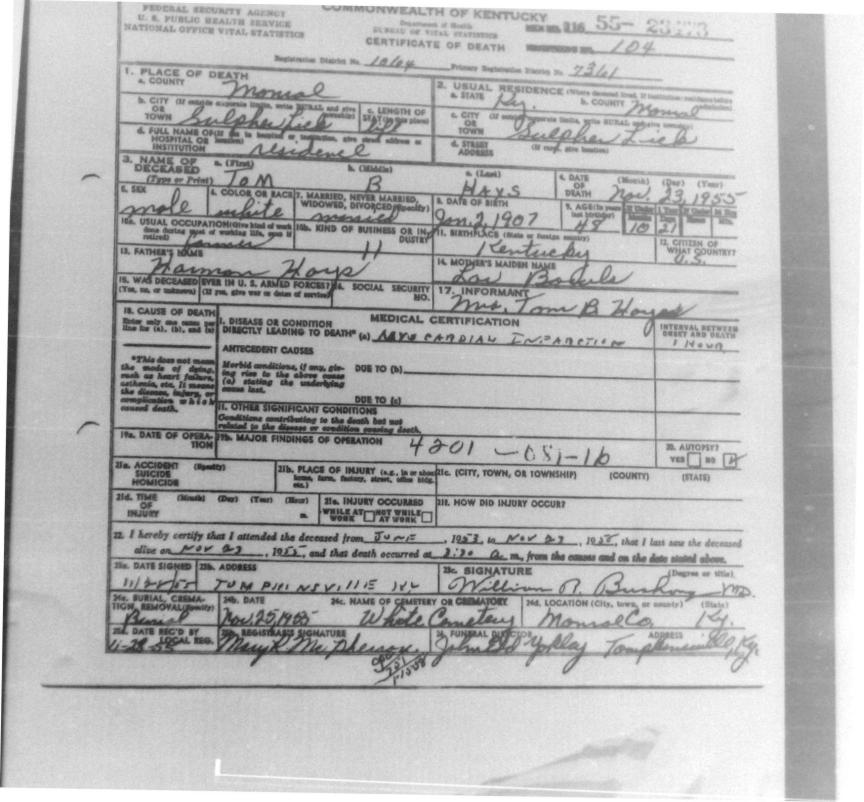 FEDERAL SECURITY AGENCY
U. S. PUBLIC HEALTH SERVICE
NATIONAL OFFICE VITAL STATISTICS
COMMONWEALTH OF KENTUCKY
Department of Health
BUREAU OF VITAL STATISTICS
CERTIFICATE OF DEATH
116 55-
104
Registration District No. 1064 Primary Registration District No. 7361
1. PLACE OF DEATH
a. COUNTY Monroe
b. CITY (If outside corporate limits, write RURAL and give
OR
TOWN Sulpher Lick
c. LENGTH OF
STAY (in this place)
life
d. FULL NAME OF (If not in hospital or institution, give street address or
HOSPITAL OR location)
INSTITUTION residence
2. USUAL RESIDENCE (Where deceased lived, If institution: residence before
admission)
a. STATE Ky. b. COUNTY Monroe
c. CITY (If outside corporate limits, write RURAL and give
OR
TOWN Sulpher Lick
d. STREET (If rural, give location)
ADDRESS
3. NAME OF
DECEASED
(Type or Print)
a. (First) b. (Middle) c. (Last)
TOM B HAYS
4. DATE (Month) (Day) (Year)
OF
DEATH Nov. 23, 1955
5. SEX
male
6. COLOR OR RACE
white
7. MARRIED, NEVER MARRIED,
WIDOWED, DIVORCED (Specify)
married
8. DATE OF BIRTH
Jan. 2, 1907
9. AGE (In years
last birthday)
48 10 21
10a. USUAL OCCUPATION (Give kind of work
done during most of working life, even if
retired) farmer
10b. KIND OF BUSINESS OR IN-
DUSTRY
11
11. BIRTHPLACE (State or foreign country)
Kentucky
12. CITIZEN OF
WHAT COUNTRY?
U.S.
13. FATHER'S NAME
Harmon Hays
14. MOTHER'S MAIDEN NAME
Lou
15. WAS DECEASED EVER IN U. S. ARMED FORCES?
(Yes, no, or unknown) (If yes, give war or dates of service)
16. SOCIAL SECURITY
NO.
17. INFORMANT
Mrs. Tom B. Hayes
18. CAUSE OF DEATH
Enter only one cause per
line for (a), (b), and (c)
*This does not mean
the mode of dying,
such as heart failure,
asthenia, etc. It means
the disease, injury, or
complication which
caused death.
MEDICAL CERTIFICATION
I. DISEASE OR CONDITION
DIRECTLY LEADING TO DEATH* (a) MYOCARDIAL INFARCTION
INTERVAL BETWEEN
ONSET AND DEATH
1 HOUR
ANTECEDENT CAUSES
Morbid conditions, if any, giv-
ing rise to the above cause
(a) stating the underlying
cause last.
DUE TO (b)
DUE TO (c)
II. OTHER SIGNIFICANT CONDITIONS
Conditions contributing to the death but not
related to the disease or condition causing death.
19a. DATE OF OPERA-
TION
19b. MAJOR FINDINGS OF OPERATION
4201 - 051-16
20. AUTOPSY?
YES NO
21a. ACCIDENT (Specify)
SUICIDE
HOMICIDE
21b. PLACE OF INJURY (e.g., in or about
home, farm, factory, street, office bldg.,
etc.)
21c. (CITY, TOWN, OR TOWNSHIP) (COUNTY) (STATE)
21d. TIME (Month) (Day) (Year) (Hour)
OF
INJURY m.
21e. INJURY OCCURRED
WHILE AT NOT WHILE
WORK AT WORK
21f. HOW DID INJURY OCCUR?
22. I hereby certify that I attended the deceased from JUNE, 1953, to NOV 23, 1955, that I last saw the deceased
alive on NOV 23, 1955, and that death occurred at 2:30 a.m., from the causes and on the date stated above.
23a. DATE SIGNED
11/28/55
23b. ADDRESS
TOMPKINSVILLE KY
23c. SIGNATURE (Degree or title)
William R. Bushong MD.
24a. BURIAL, CREMA-
TION, REMOVAL (Specify)
Burial
24b. DATE
Nov. 25, 1955
24c. NAME OF CEMETERY OR CREMATORY
White Cemetery
24d. LOCATION (City, town, or county) (State)
Monroe Co. Ky.
25a. DATE REC'D BY
LOCAL REG.
11-28-55
25b. REGISTRAR'S SIGNATURE
Mary R. McPherson
26. FUNERAL DIRECTOR ADDRESS
John Ed Yokley Tompkinsville, Ky.